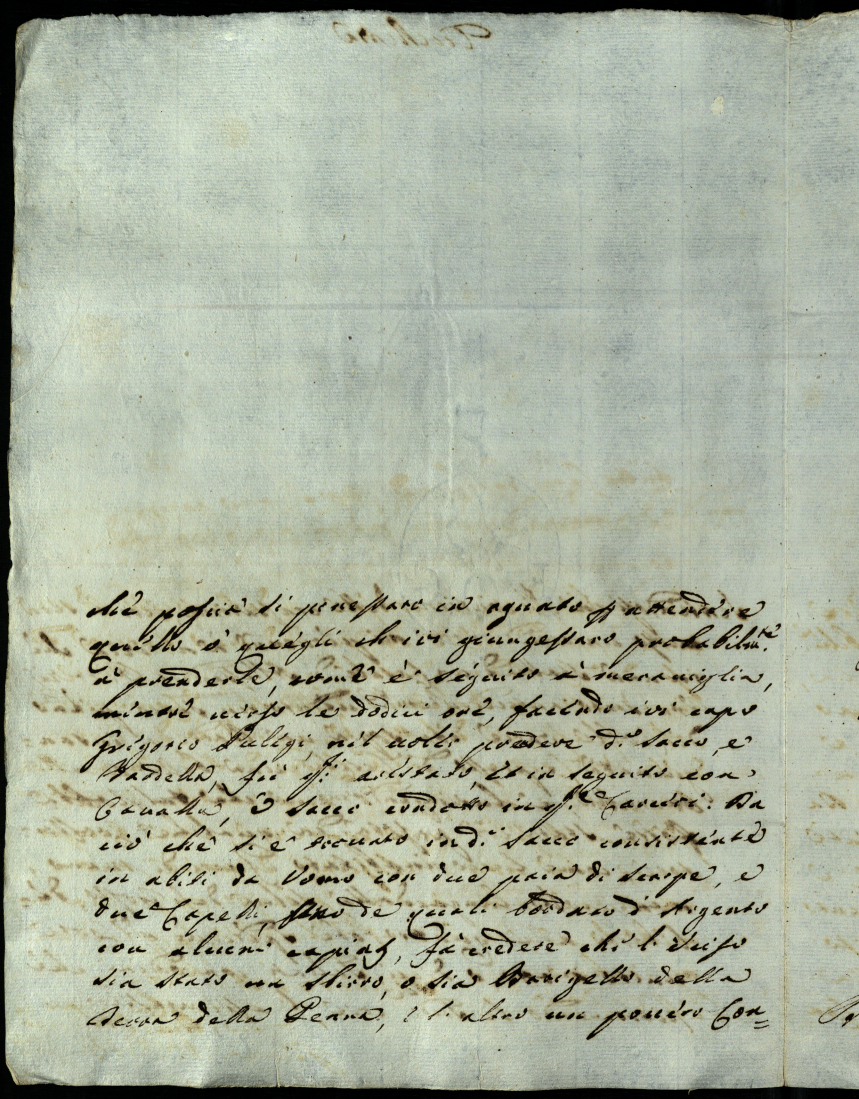 che poscia si ponessaro in aguato p attendere
quello ò quegli ch ivi giungessaro probabilm.te
à prenderle, come è seguito à meraviglia,
mentre verso le dodici ore, facendo ivi capo
Gregorio nel volle prendere d.o sacco, e
fù q.i arestato, et in seguito con
Cavalla, e sacco condotto in q.e Carceri. Da
ciò che si è trovato in d.o sacco consistente
in abiti da Uomo con due paia di scarpe, e
due Capelli, uno de quali bordato d'Argento
con alcune fà credere che l'Uciso
sia stato un sbirro, o sia Barigello della
Terra della Penna, e l'altro un povero Con=